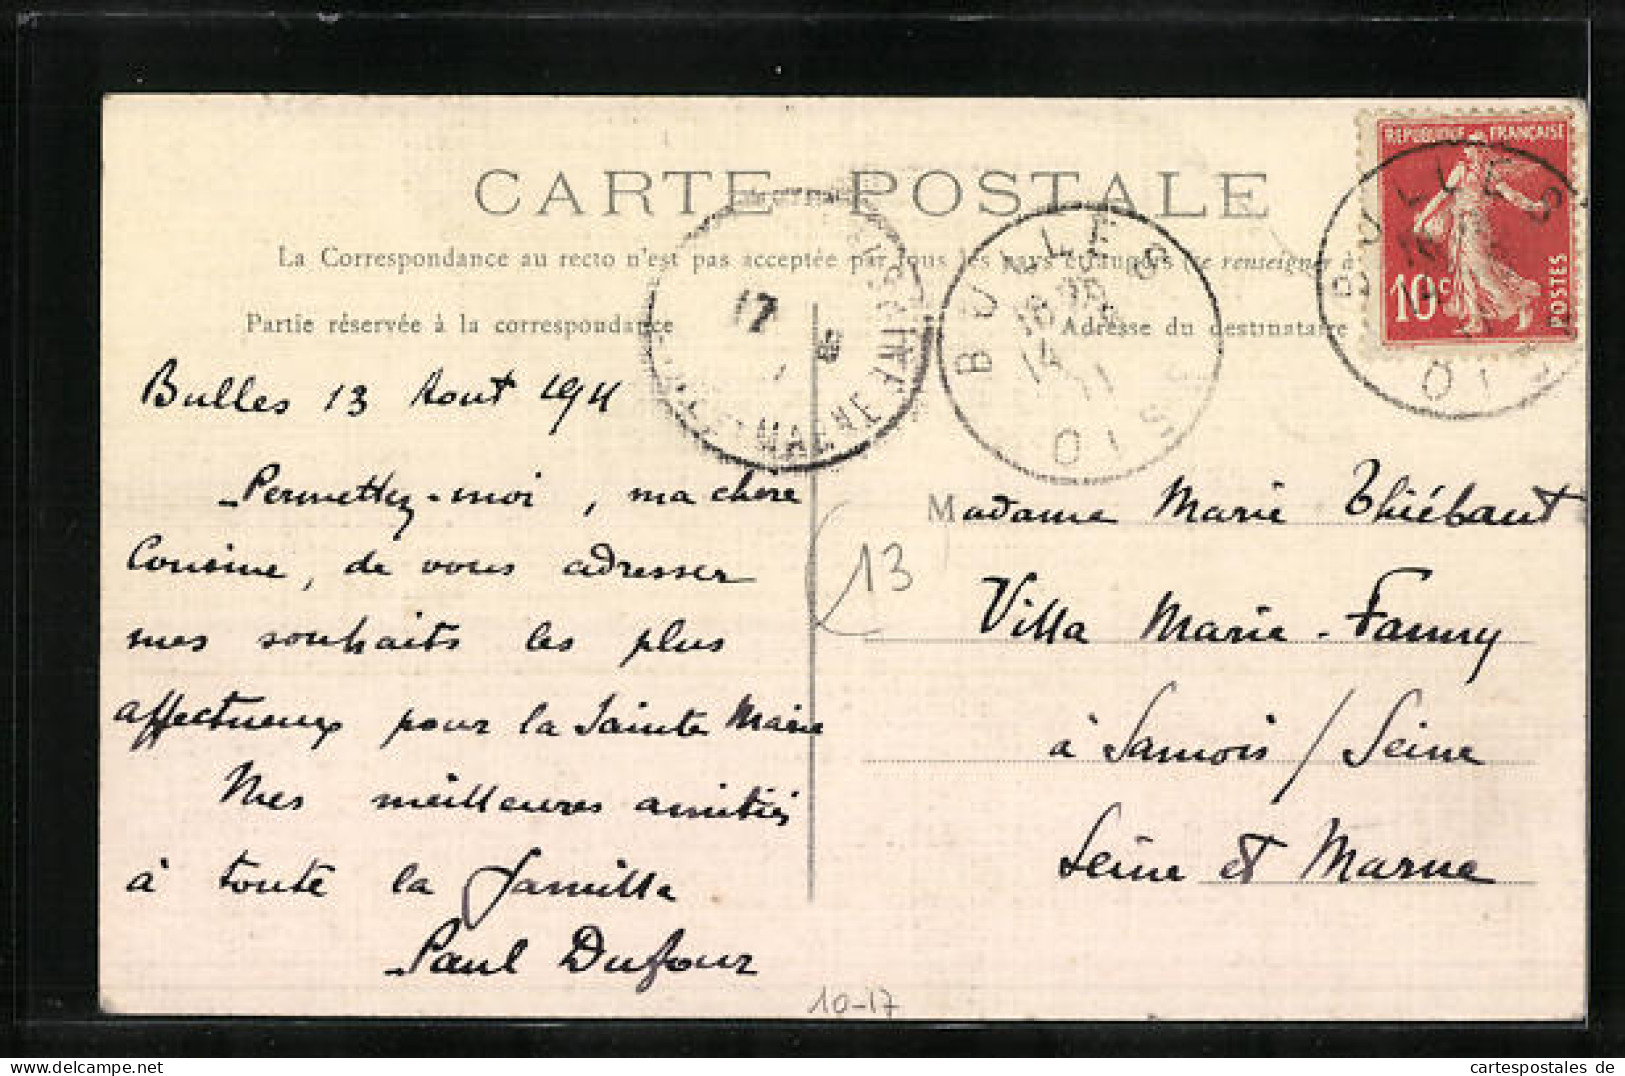 CARTE POSTALE
La Correspondance au recto n'est pas acceptée par tous les pays étrangers (Se renseigner à
Partie réservée à la correspondance
Adresse du destinataire
REPUBLIQUE FRANÇAISE
10c
POSTES
BULLES
OISE
17
8
MARNE
BULLES
14
11
OIS
Bulles 13 Aout 1911
Permettez-moi, ma chère
Cousine, de vous adresser
mes souhaits les plus
affectueux pour la Sainte Marie
Mes meilleures amitiés
à toute la famille
Paul Dufour
Madame Marie Thiébaut
Villa Marie-Fanny
à Samois / Seine
Seine et Marne
13
10-17
cartespostales de